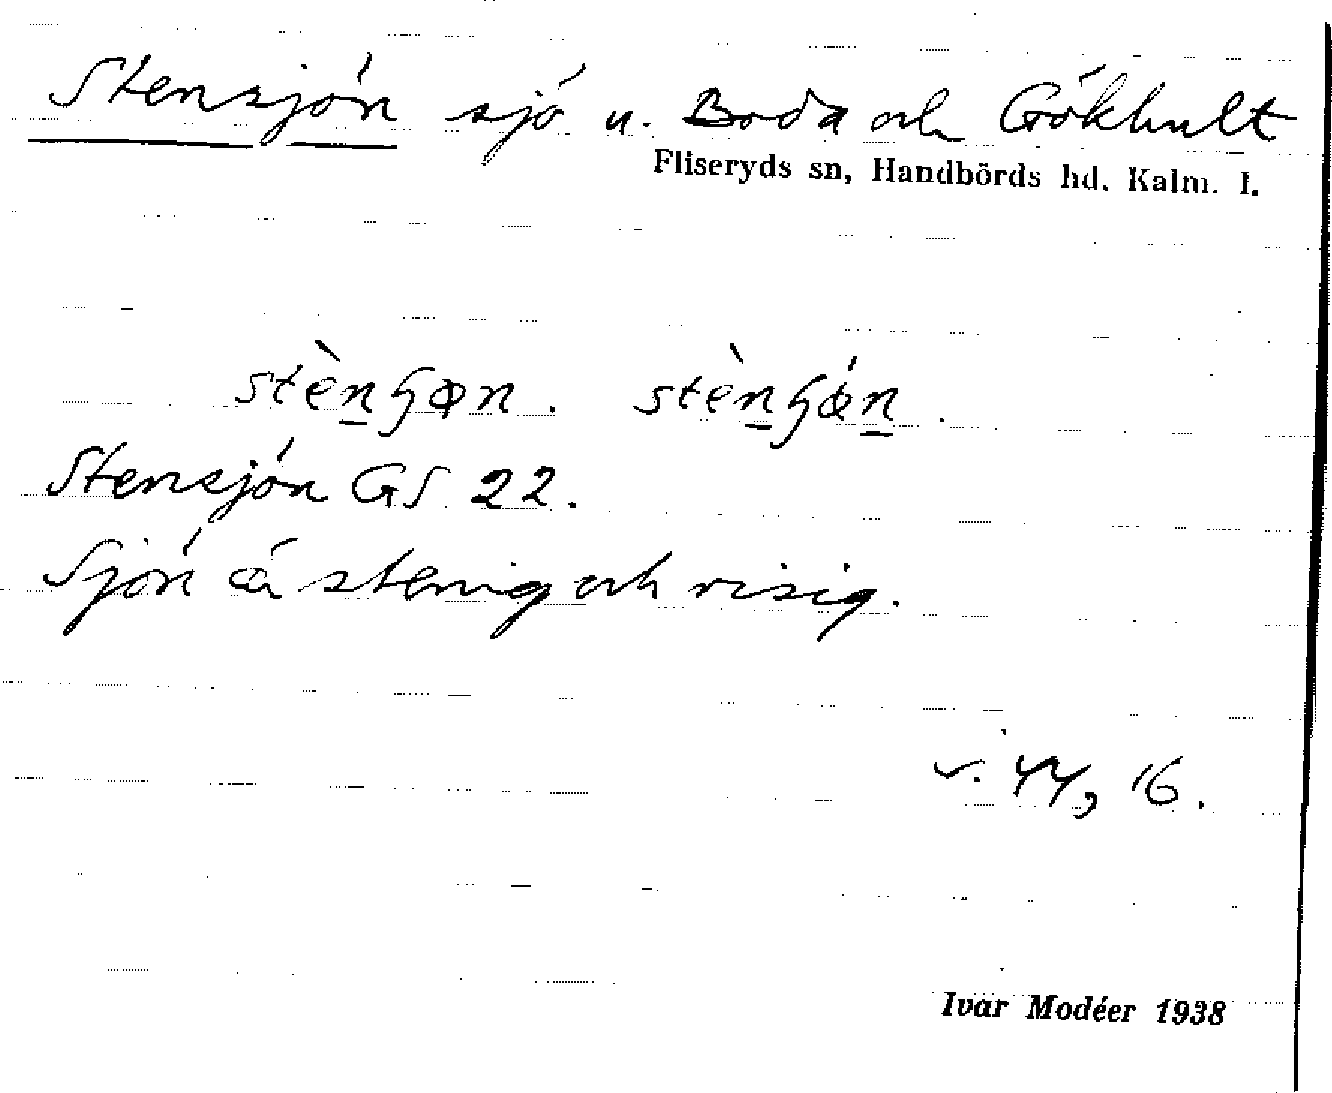 Stensjön sjö u. Boda och Gökhult
Fliseryds sn, Handbörds hd. Kalm. l.
Stensjön GS 22.
Sjön är stenig och risig.
v. 44, 16.
Ivar Modéer 1938